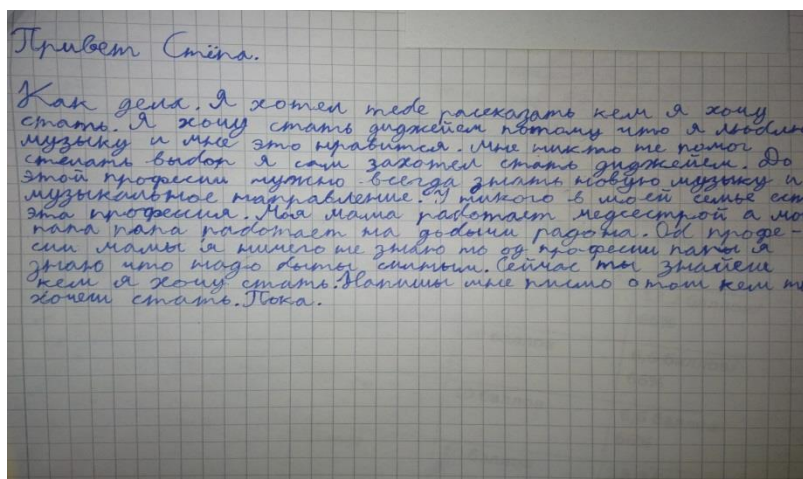 Привет Стёпа.
Как дела. Я хотел тебе рассказать кем я хочу
стать. Я хочу стать диджейем потому что я люблю
музыку и мне это нравится. Мне никто не помог
стелать выбор я сам захотел стать диджейем. До
этой професии нужно всегда знать новую музыку и
музыкальное направление. У никого в моей семье ест
эта професия. Моя мама работает медсестрой а мо
папа папа работает на добычи радона. Об профе-
сии мамы я ничего не знаю но од професии папы я
знаю что надо быты силным. Сейчас ты знайеш
кем я хочу стать. Напишы мне писмо о том кем т
хочеш стать. Пока.